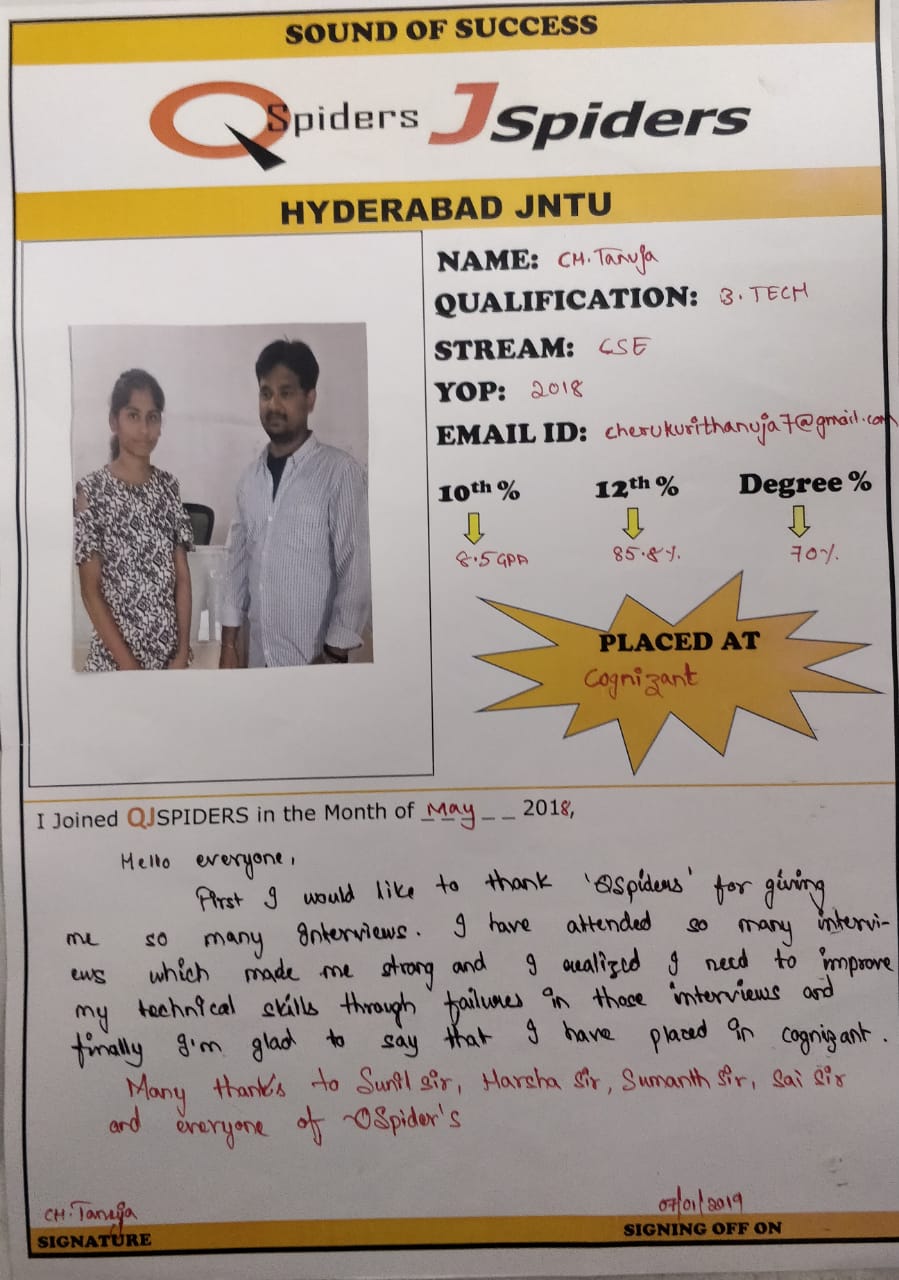 SOUND OF SUCCESS
QSpiders JSpiders
HYDERABAD JNTU
NAME: CH. Tanuja
QUALIFICATION: B.TECH
STREAM: CSE
YOP: 2018
EMAIL ID: cherukurithanuja7@gmail.com
10th % 12th % Degree %
8.5 GPA 85.8% 70%
PLACED AT
Cognizant
I Joined QJSPIDERS in the Month of May 2018,
Hello everyone,
First I would like to thank 'QSpiders' for giving
me so many Interviews. I have attended so many intervi-
ews which made me strong and I realized I need to improve
my technical skills through failures in those interviews and
finally I'm glad to say that I have placed in cognizant.
Many thanks to Sunil Sir, Harsha Sir, Sumanth Sir, Sai Sir
and everyone of QSpider's
CH. Tanuja 07/01/2019
SIGNATURE SIGNING OFF ON